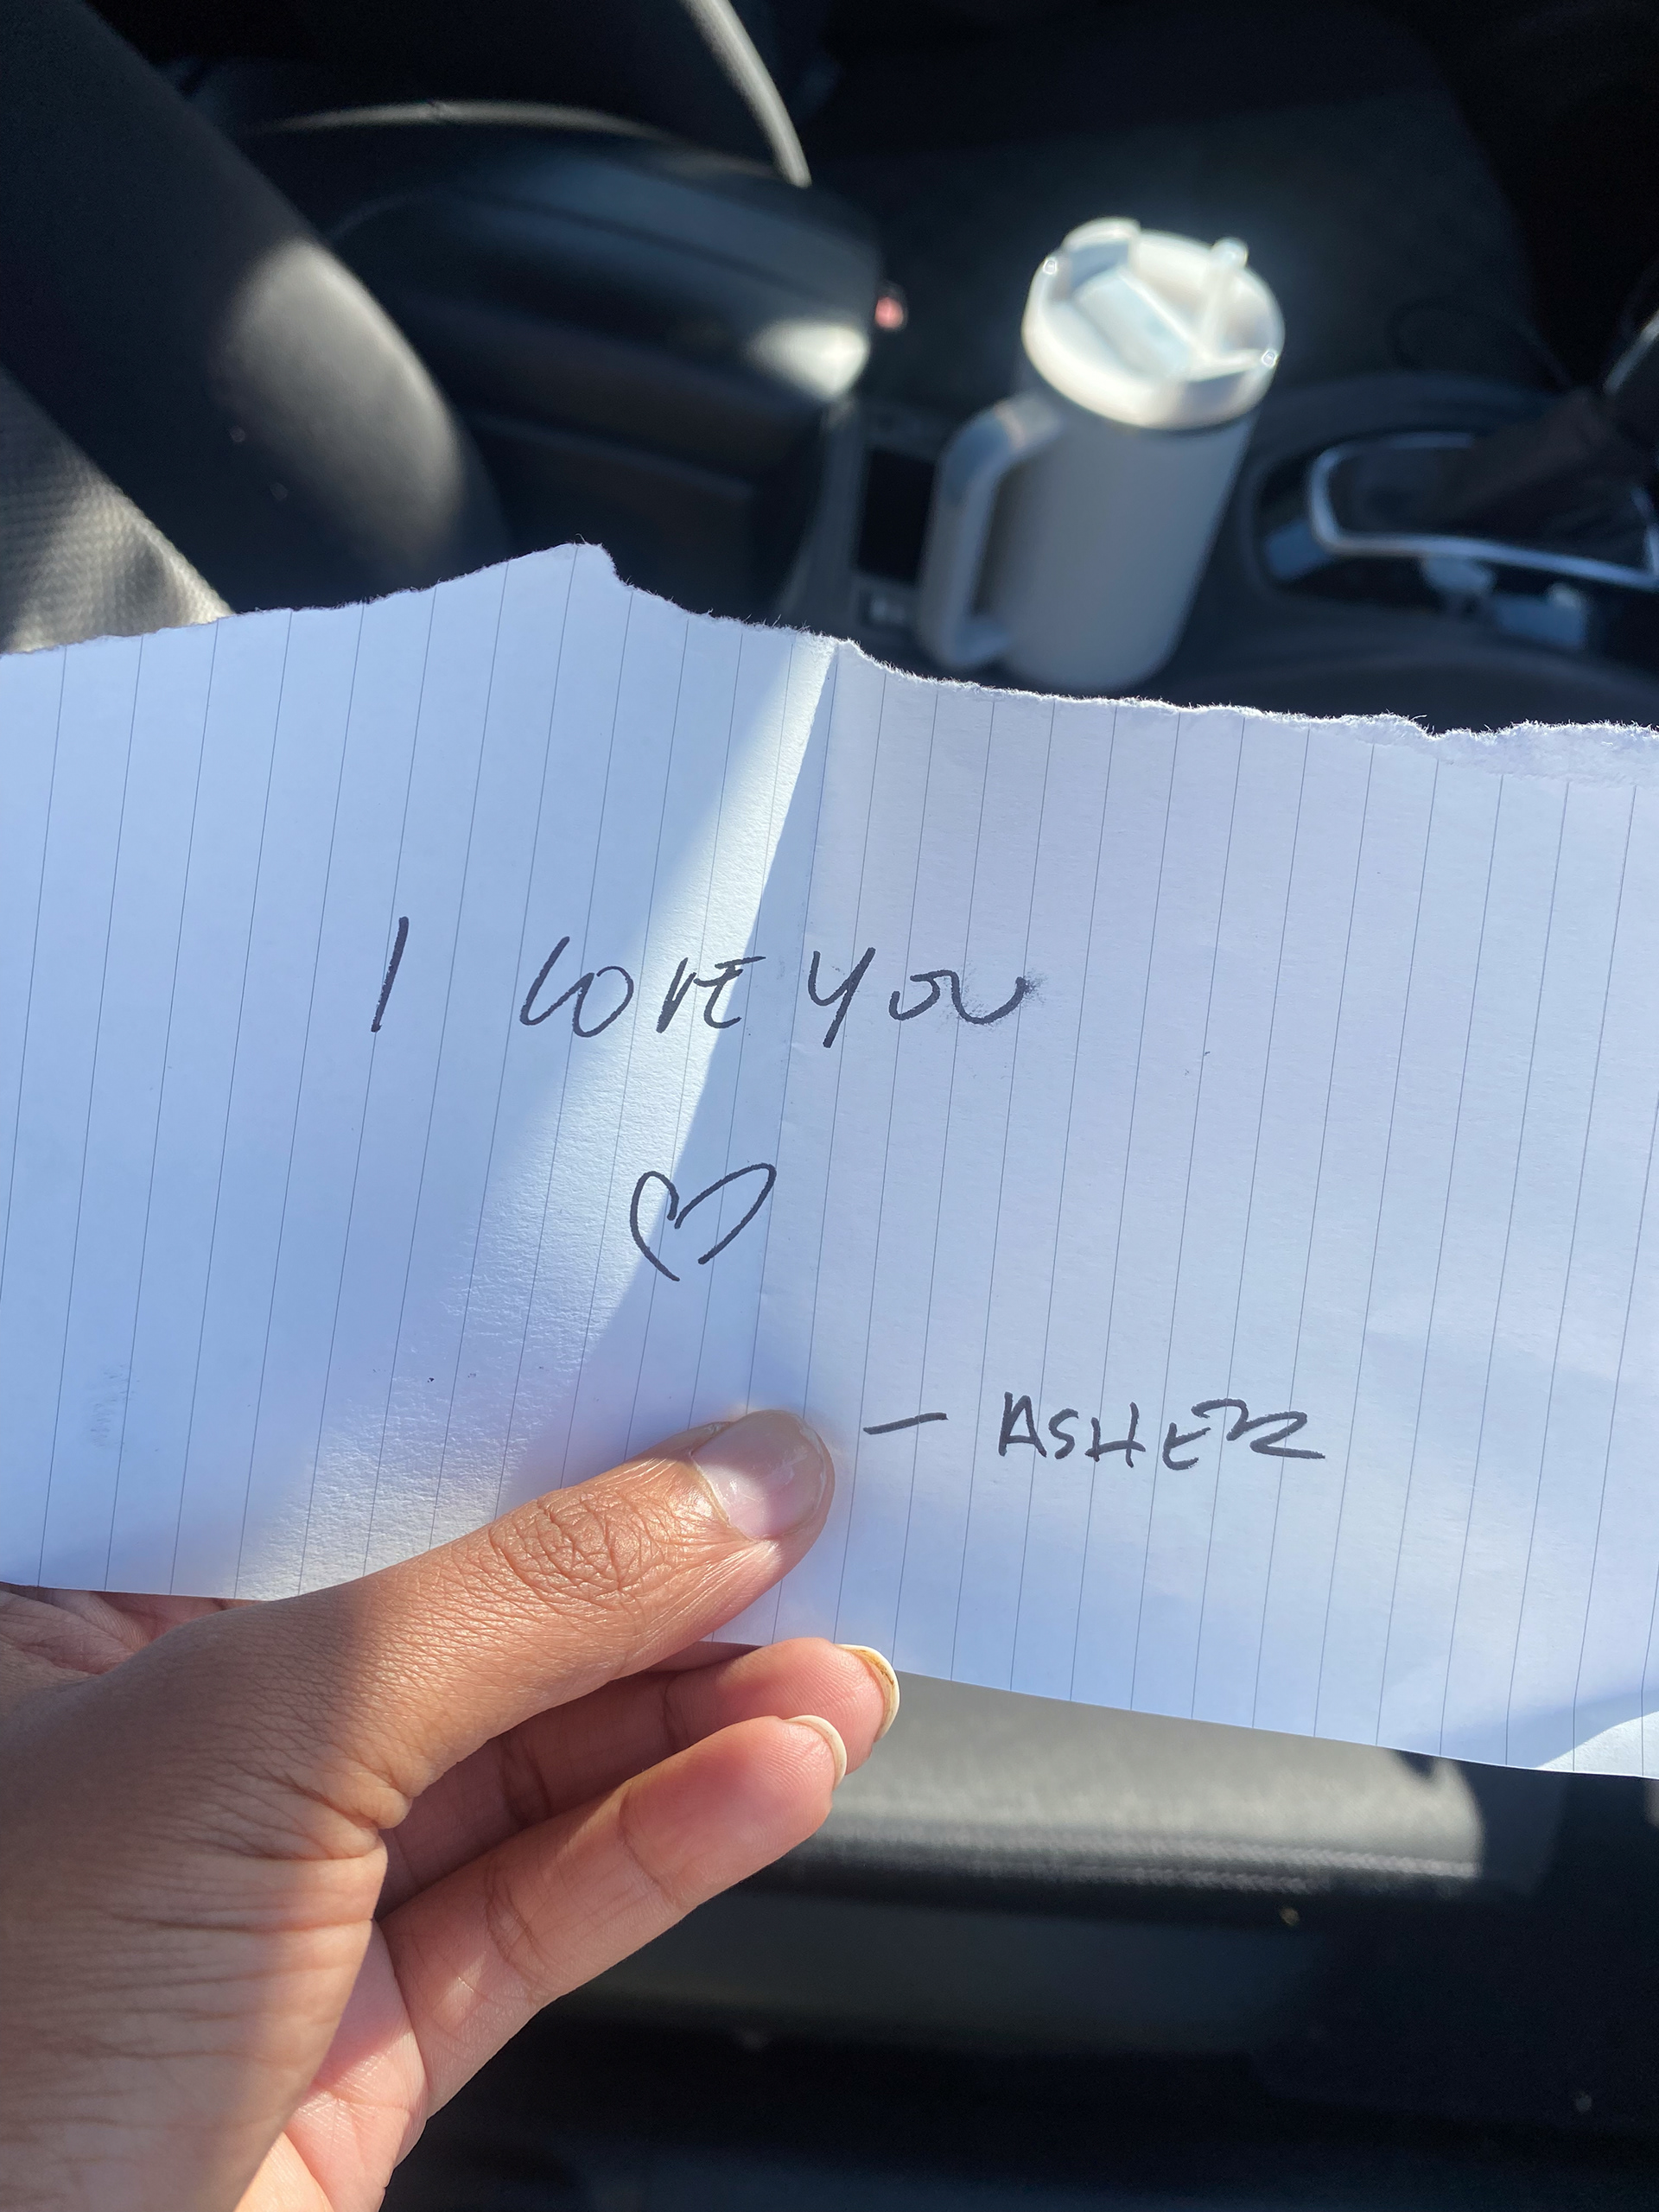 I LOVE YOU
— ASHER